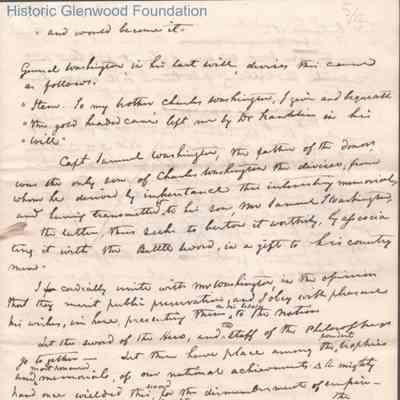 Historic Glenwood Foundation
" and would become it.
General Washington in his last will, devises this cane
as follows.
" Item. To my brother Charles Washington, I give and bequeath
" the gold headed cane left me by Dr. Franklin in his
" will"
Capt. Samuel Washington, the father of the donor,
was the only son of Charles Washington the devisee, from
whom he derived by inheritance this interesting memorial,
and having transmitted it to his son, Mr Samuel T Washington,
the latter, thus seeks to bestow it worthily, by associa
ting it with the Battle Sword, in a gift to his country
men.
I cordially unite with Mr Washington, in the opinion
that they merit public preservation, and I obey with pleasure
his wishes, in here, presenting them, in his name, to the Nation
Let the sword of the Hero, and the staff of the Philosopher
go together — Let them have place among the proudest trophies
and most honored memorials, of our national achievements
hand once wielded this sword, for the dismemberments of empire—
the